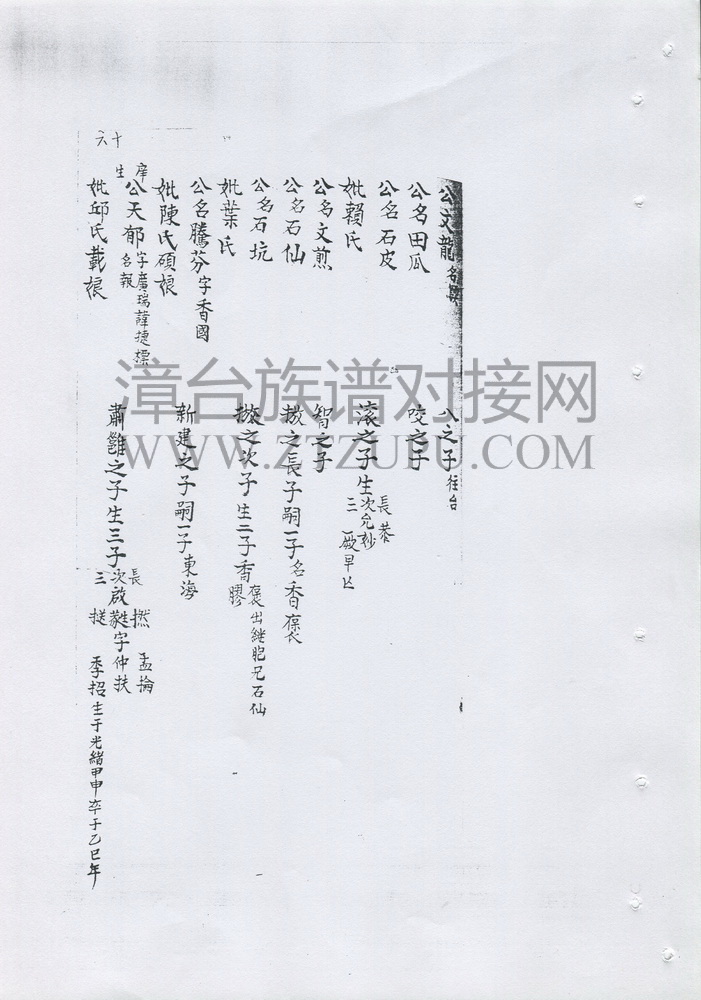 公文龍名
八之子往台
公名田瓜
咬之子
公名石皮
滚之子生長恭次允秒三厭早亡
妣賴氏
公名文煎
智之子
公名石仙
掽之長子嗣一子名香
公名石坑
之次子生二子香 膠 出継胞兄石仙
妣葉氏
公名騰芬字香國
新建之子嗣一子東海
妣陳氏碩娘
庠生公天郁字廣瑞諱捷標名報
蕭雝之子生三子長 孟掄次啟 字仲扶三 季招生于光緒甲申卒于乙巳年
妣邱氏載娘
十六
漳台族谱对接网
WWW.ZTZUPU.COM